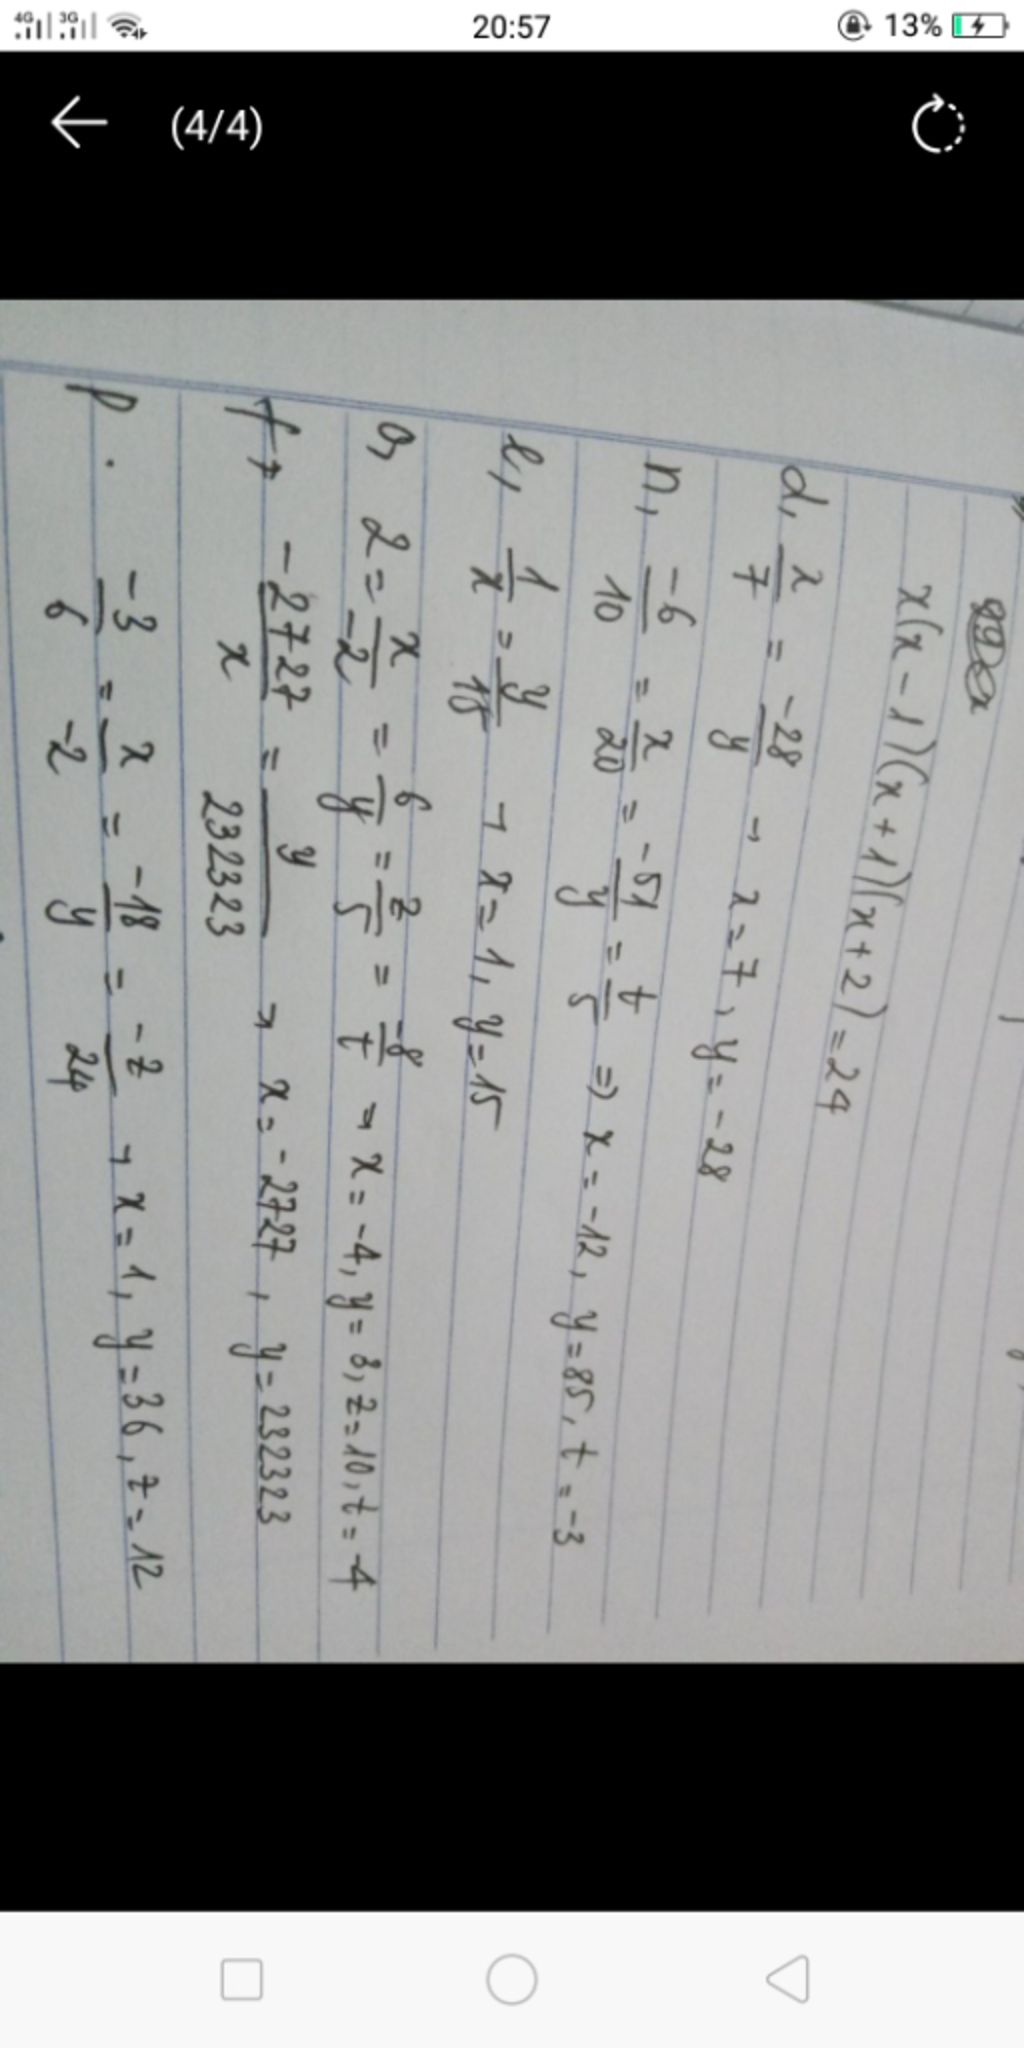 4G 3G 20:57 13%
(4/4)
x(x-1)(x+1)(x+2)=24
d, x/7 = -28/y → x=7, y=-28
n, -6/10 = x/20 = -51/y = t/5 => x=-12, y=85, t=-3
e, 1/x = y/15 → x=1, y=15
o, 2 = x/-2 = 6/y = z/5 = -8/t → x=-4, y=3, z=10, t=-4
f, -2727/x = y/232323 → x=-2727, y=232323
p. -3/6 = x/-2 = -18/y = -z/24 → x=1, y=36, z=12